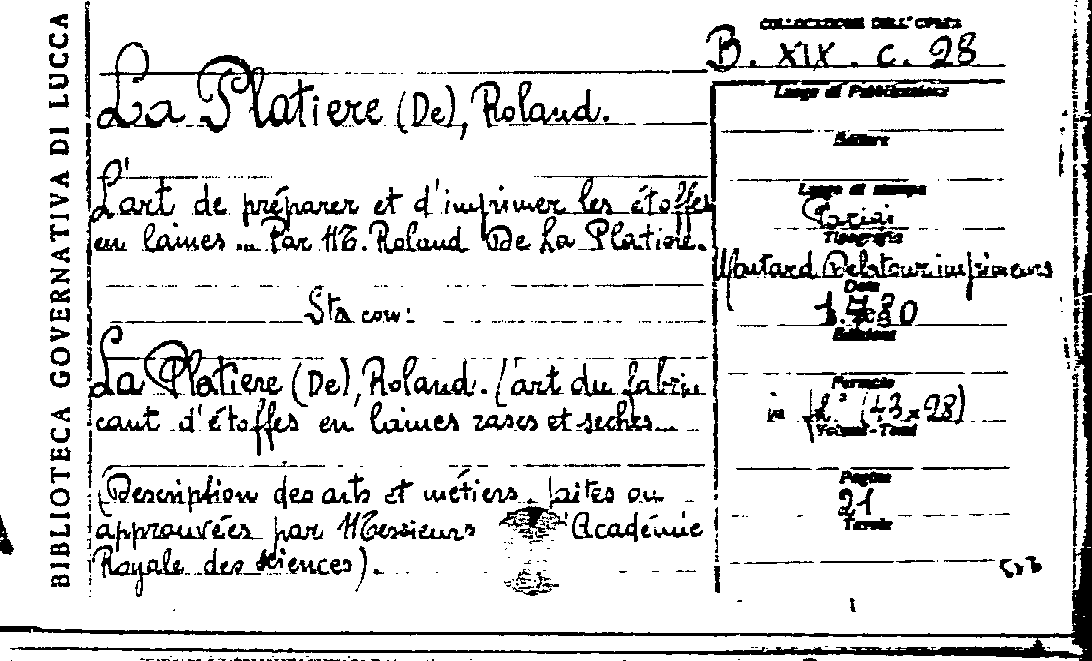 BIBLIOTECA GOVERNATIVA DI LUCCA
COLLOCAZIONE DELL'OPERA
B. XIX. c. 28
La Platiere (De), Roland.
L'art de préparer et d'imprimer les étoffes
en laines... Par M. Roland De La Platiere.
Sta con:
La Platiere (De), Roland. L'art du fabri
cant d'étoffes en laines rases et seches...
(Description des arts et métiers, faites ou
approuvées par Messieurs l'Académie
Royale des sciences).
Luogo di Pubblicazione
Editore
Luogo di stampa
Parigi
Tipografia
Moutard Delatour imprimeurs
Data
1780
Edizione
Formato
in (43x28)
Volumi - Tomi
Pagine
21
Tavole